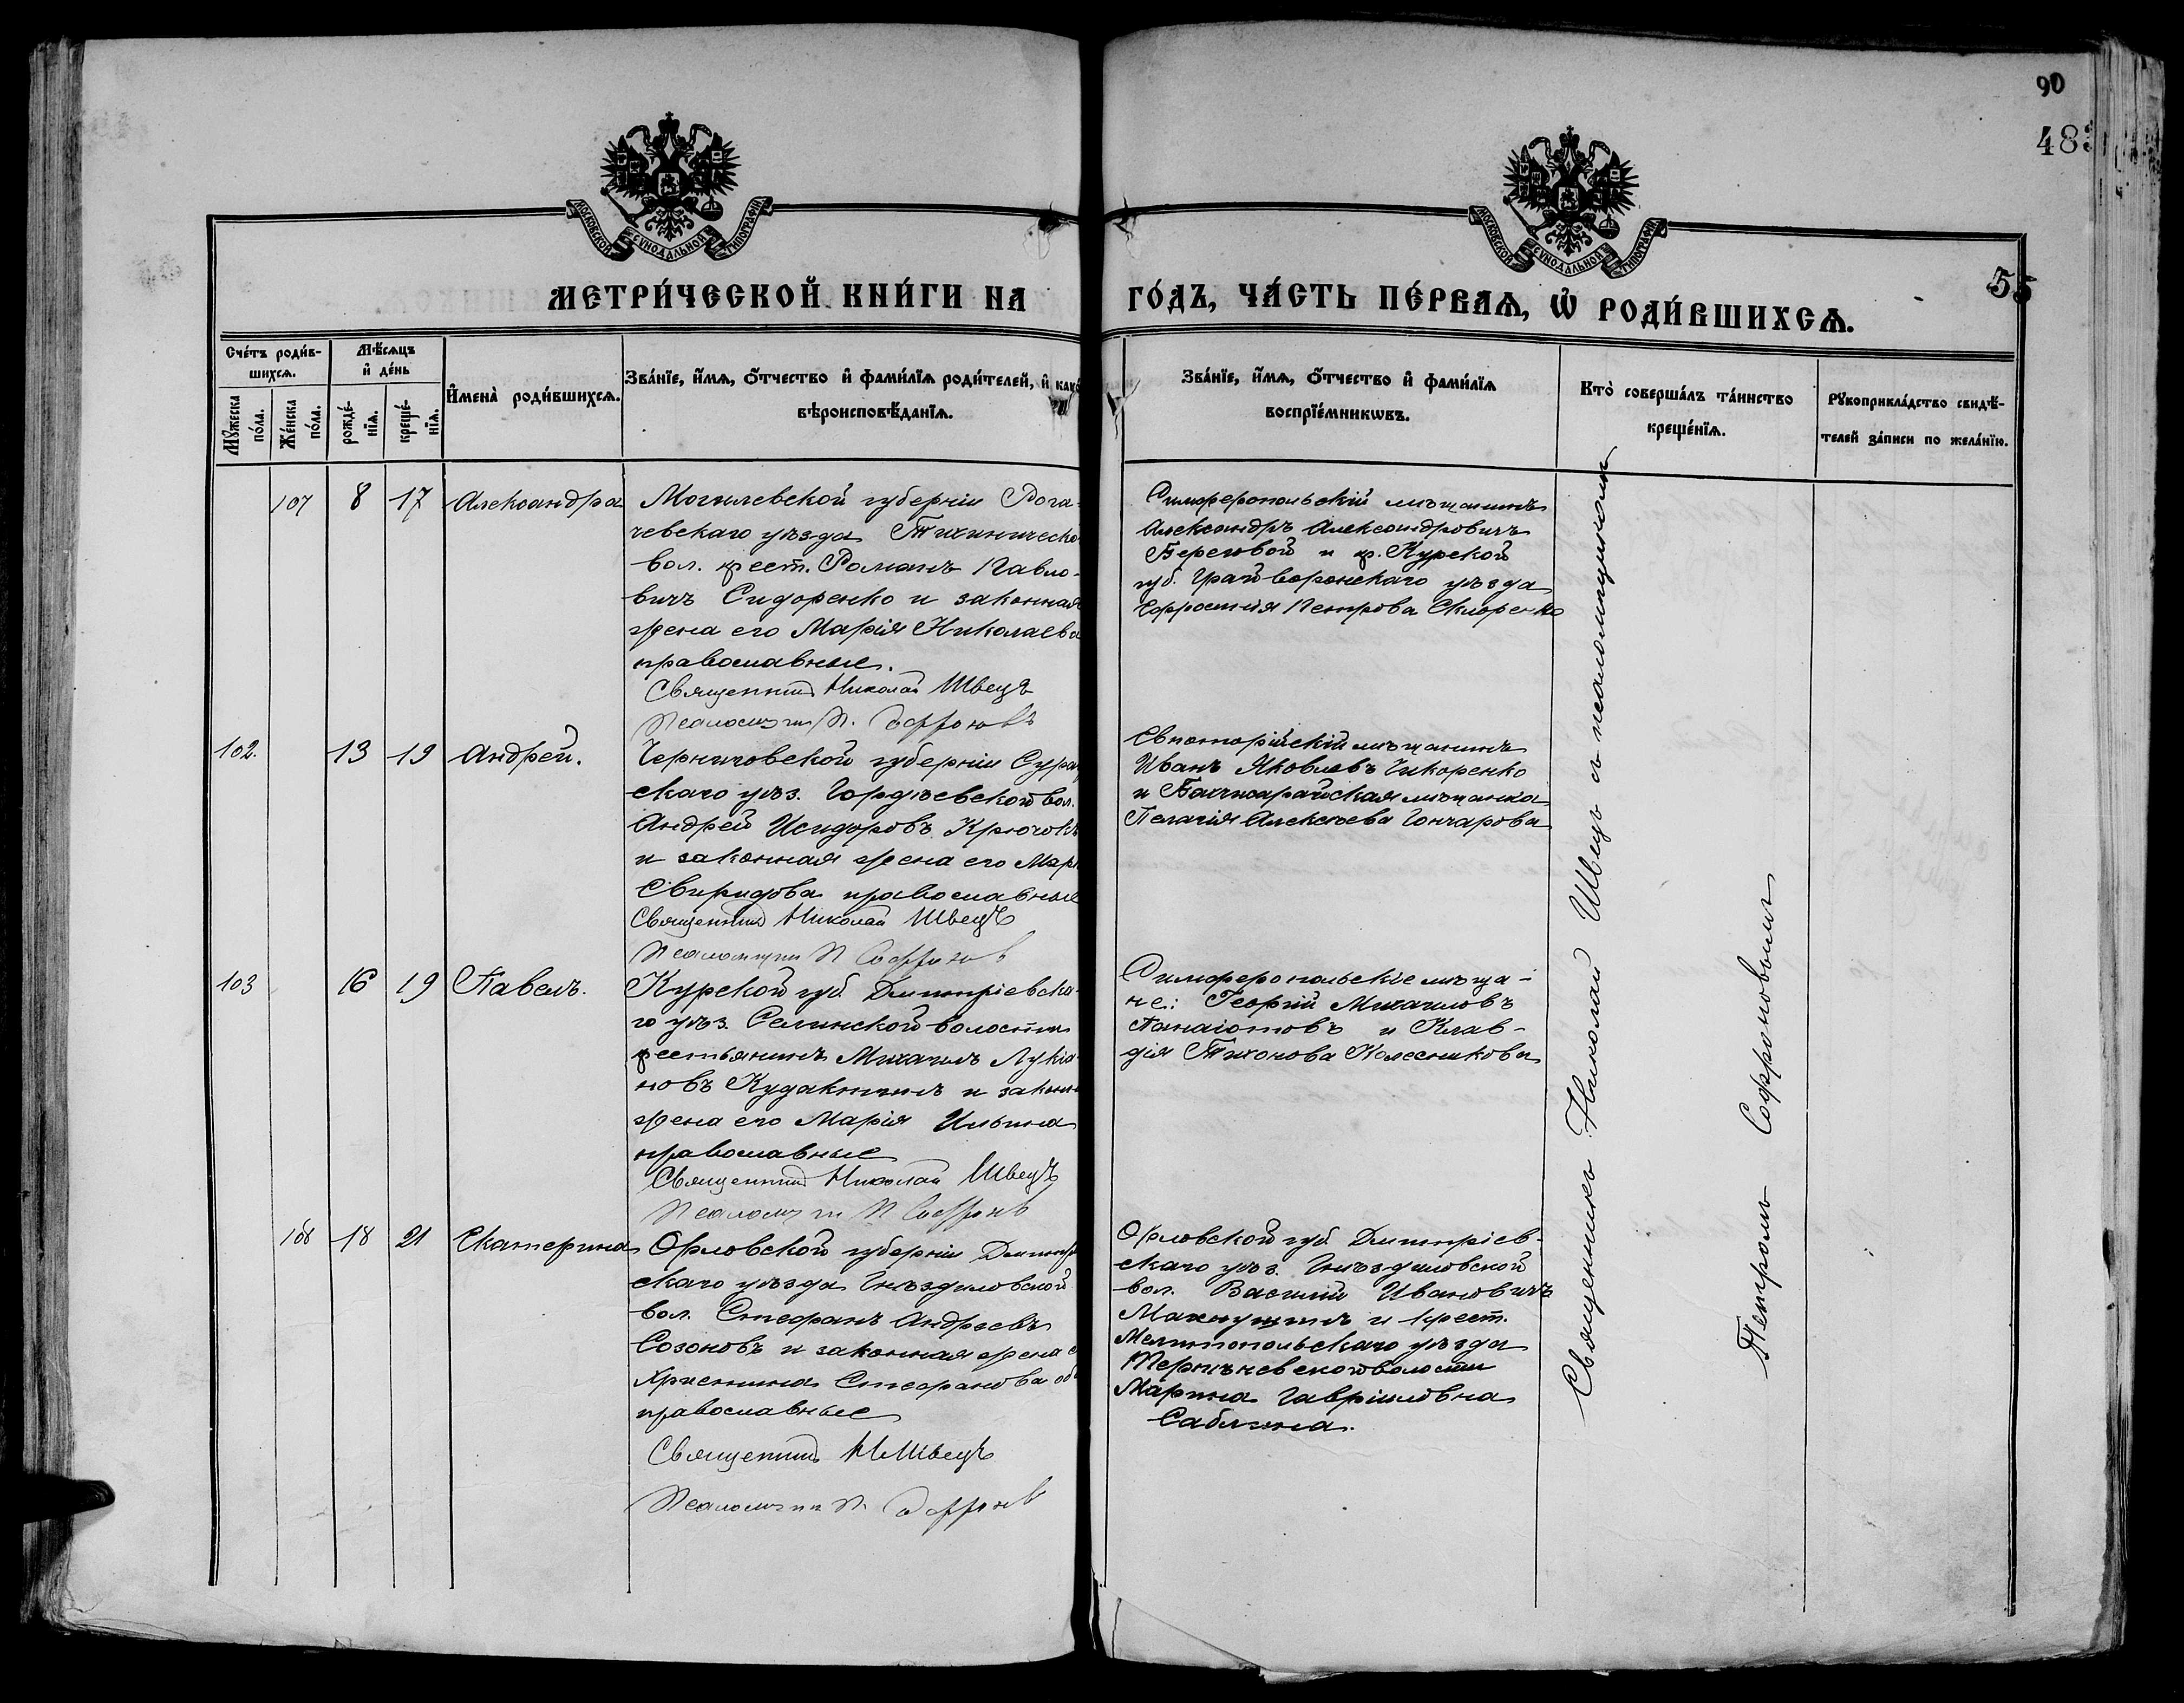 90
483
55
МОСКОВСКОЙ СѴНОДАЛЬНОЙ ТИПОГРАФІИ
МОСКОВСКОЙ СѴНОДАЛЬНОЙ ТИПОГРАФІИ
МЕТРИ́ЧЕСКОЙ КНИ́ГИ НА
ГО́ДЪ, ЧА́СТЬ ПЕ́РВАѦ, Ѡ҆ РОДИ́ВШИХСѦ.
Сче́тъ роди́в-
шихсѧ.
Мꙋ́жеска
по́ла.
Же́нска
по́ла.
Мѣ́сѧцъ
и҆ де́нь
рожде́-
нїѧ.
креще́-
нїѧ.
И҆мена̀ роди́вшихсѧ.
Зва́нїе, и҆́мѧ, ѻ҆́тчество и҆ фами́лїѧ роди́телей, и҆ како
вѣроисповѣ́данїѧ.
Зва́нїе, и҆́мѧ, ѻ҆́тчество и҆ фами́лїѧ
воспрїе́мникѡвъ.
Кто̀ соверша́лъ та́инство
креще́нїѧ.
Рꙋкоприкла́дство свидѣ́-
телей за́писи по жела́нїю.
107
8
17
Александра
Могилевской губерніи Рога-
чевскаго уѣзда Тихиническо
вол. крест. Романъ Павло-
вичъ Сидоренко и законная
жена его Марія Николаева
православные.
Священникъ Николай Швецъ
Псаломщикъ П. Софроновъ
Симферопольскій мѣщанинъ
Александръ Александровичъ
Береговой и кр. Курской
губ. Грайворонскаго уѣзда
Евфросинія Петрова
102.
13
19
Андрей.
Черниговской губерніи Сура
скаго уѣз. Гордѣевской вол.
Андрей Исидоровъ Крючокъ
и законная жена его Мар
Свиридова православные
Священникъ Николай Швецъ
Псаломщикъ П Софронов
Евпаторійскій мѣщанинъ
Иванъ Яковлевъ Чикоренко
и Бахчисарайская мѣщанка
Пелагія Алексѣева Гончарова
103
16
19
Павелъ.
Курской губ. Дмитріевска-
го уѣз. Селинской волости
крестьянинъ Михаилъ Лукіа-
новъ Кудакинъ и законн
жена его Марія Ильина
православные
Священникъ Николай Швецъ
Псаломщикъ П Софронов
Симферопольскіе мѣща-
не: Георгій Михаиловъ
Панаіотовъ и Клав-
дія Тихонова Колесникова
108
18
21
Екатерина
Орловской губерніи Дмитр
скаго уѣзда Гнѣздиловской
вол. Стефанъ Андреевъ
Созоновъ и законная жена е
Христина Стефанова об
православные
Священникъ Н Швецъ
Псаломщикъ П. Софронов
Орловской губ Дмитріев-
скаго уѣз. Гнѣздиловской
вол. Василій Ивановичъ
и крест.
Мелитопольскаго уѣзда
волости
Марина Гавріиловна
Саблина.
Священникъ Николай Швецъ съ псаломщикомъ
Петромъ Софроновымъ